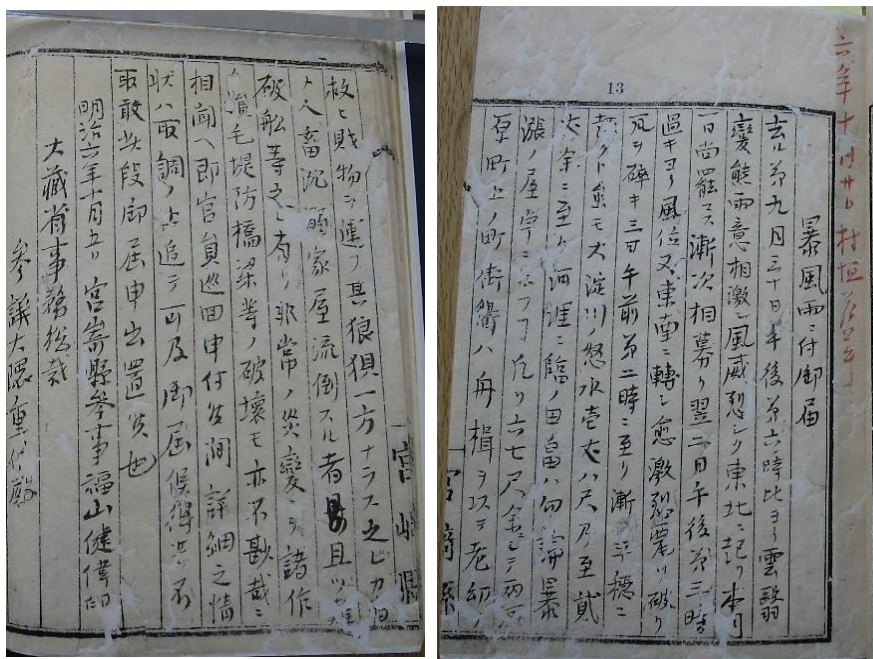 13
暴風雨ニ付御届
去ル第九月三十日午後第六時比ヨリ雲翳
變態雨意相激シ風威烈シク東北ニ起リ本月
一日尚罷マス漸次相募リ翌二日午後第三時
過キヨリ風位又東南ニ轉シ愈激烈
瓦ヲ碎キ三日午前第二時ニ至リ漸ク平穏ニ
大淀川ノ怒水壱丈八尺乃至貳
丈余ニ至リ河涯ニ臨ノ田畠ハ勿論暴
漲ノ屋宇ニ
町上ノ町街衢ハ舟楫ヲ以テ老幼ヲ
宮崎縣
救ヒ財物ヲ運フ其狼狽一方ナラス
人畜沉溺家屋流倒スル者 且
破船等之レ有リ非常ノ災變ニテ諸作
損毛堤防橋梁等ノ破壊モ亦不尠哉ニ
相聞ヘ即官員巡回申付候間詳細之情
状ハ取調ノ上追テ可及御届候得共不
取敢此段御届申出置候也
明治六年十月五日 宮崎縣参事福山健偉印
大藏省事務総裁
参議大隈重信殿
宮崎縣